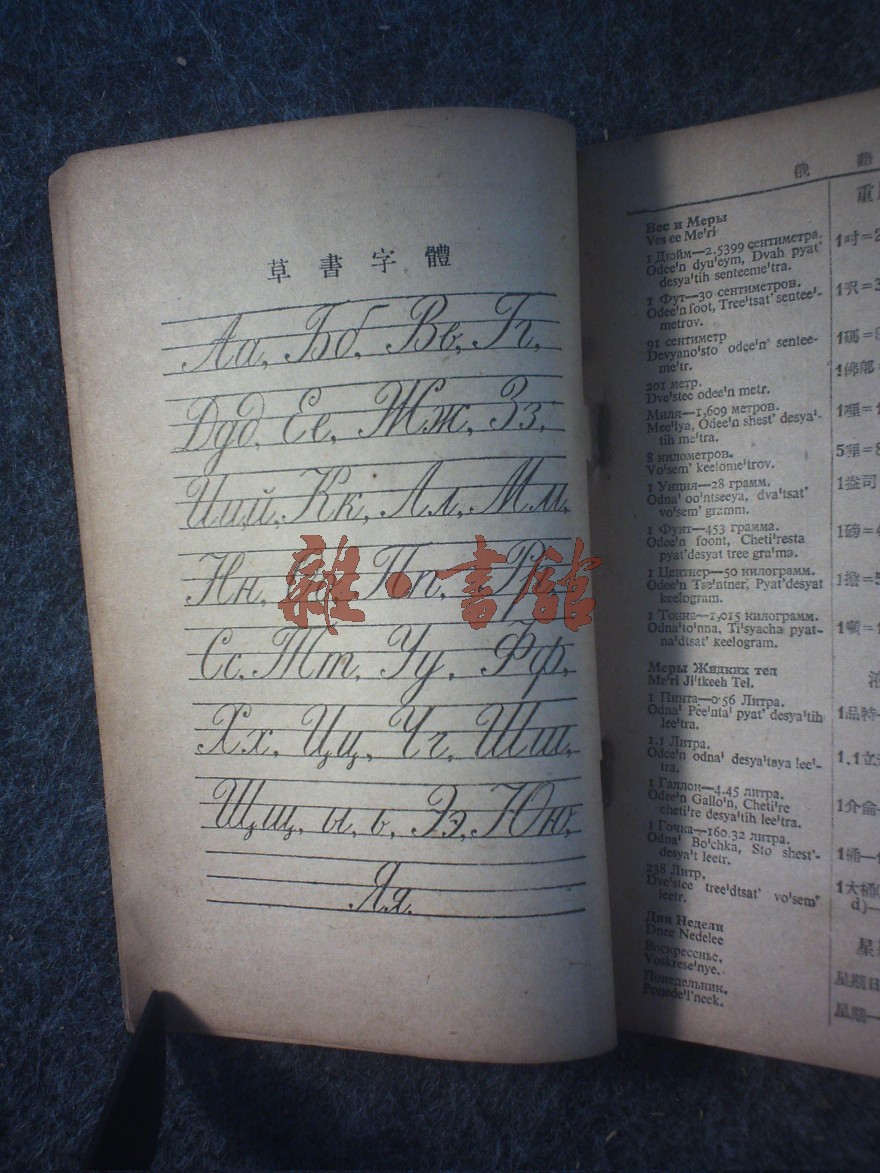 草書字體
Аа, Бб, Вв, Гг,
Дд, Ее, Жж, Зз,
Иий, Кк, Лл, Мм,
Нн, Оо, Пп, Рр,
Сс, Тт, Уу, Фф,
Хх, Цц, Чч, Шш,
Щщ, ы, ь, Ээ, Юю,
Яя.
雜·書館
俄
重
Вес и Меры
Ves ee Me'ri
1 Дюйм—2.5399 сентиметра.
Odee'n dyu'eym, Dvah pyat'
desya'tih senteeme'tra.
1 Фут—30 сентиметров.
Odee'n foot, Tree'tsat' sentee'-
metrov.
91 сентиметр
Devyano'sto odee'n' sentee-
me'tr.
201 метр.
Dve'stee odee'n metr.
Миля—1,609 метров.
Mee'lya, Odee'n shest' desya'-
tih me'tra.
8 километров.
Vo'sem' keelome'trov.
1 Унция—28 грамм.
Odna' oo'ntseeya, dva'tsat'
vo'sem' gramm.
1 Фунт—453 грамма.
Odee'n foont, Cheti'resta
pyat'desyat tree gra'ma.
1 Центнер—50 килограмм.
Odee'n Tse'ntner, Pyat'desyat
keelogram.
1 Тонна—1,015 килограмм.
Odna'to'nna, Ti'syacha pyat-
na'dtsat' keelogram.
Меры Жидких тел
Me'ri Ji'tkeeh Tel.
1 Пинта—0·56 Литра.
Odna' Pee'nta' pyat' desya'tih
lee'tra.
1.1 Литра.
Odee'n odna' desya'taya lee'-
tra.
1 Галлон—4.45 литра.
Odee'n Gallo'n, Cheti're
cheti're desya'tih lee'tra.
1 Бочка—160.32 литра.
Odna' Bo'chka, Sto shest'-
desya't leetr.
238 Литр.
Dve'stee tree'dtsat' vo'sem'
leetr.
Дни Недели
Dnee Nedelee
Воскресенье.
Voskrese'nye.
Понедельник.
Ponede'l'neek.
1吋=2
1呎=3
1碼=
1哩=1
5哩=8
1盎司
1磅=4
1擔=5
1噸=1
1品特
1.1立
1介侖
1桶—1
1大桶
d)—
星
星期日
星期—